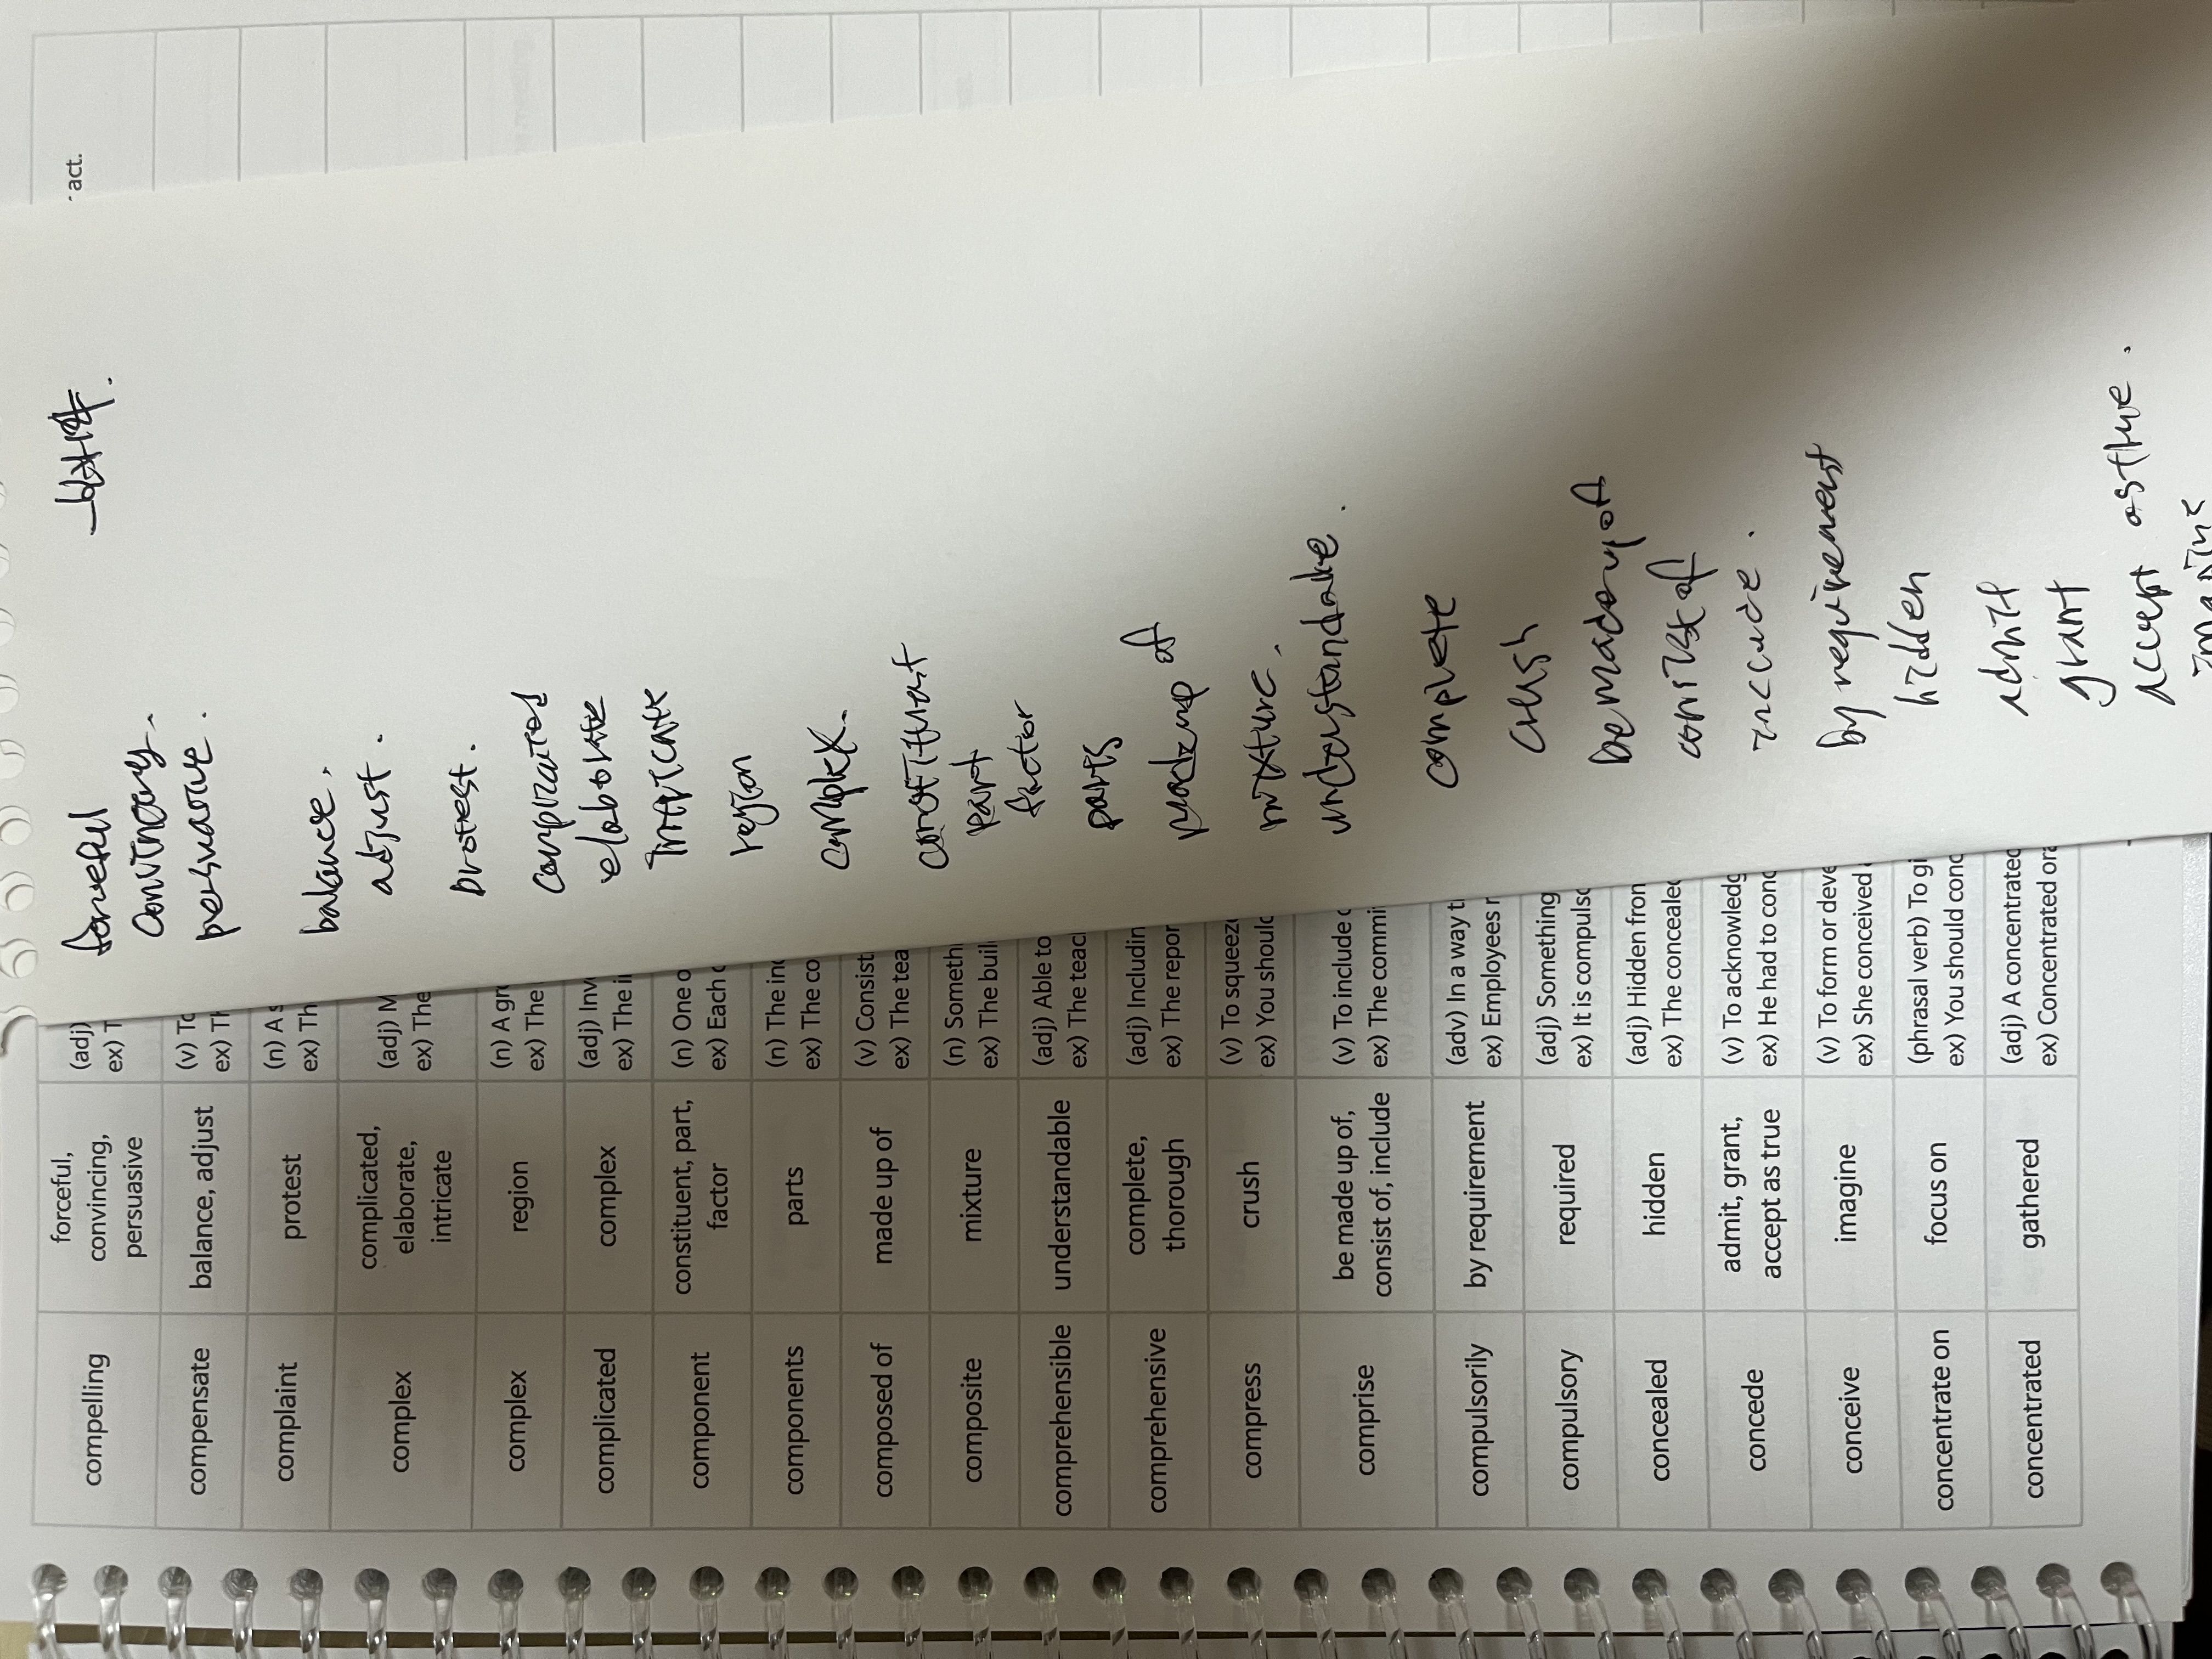 act.
compelling
forceful,
convincing,
persuasive
(adj)
ex) T
compensate
balance, adjust
(v) To
ex) Th
complaint
protest
(n) A s
ex) Th
complex
complicated,
elaborate,
intricate
(adj) M
ex) The
complex
region
(n) A gr
ex) The
complicated
complex
(adj) Inv
ex) The i
component
constituent, part,
factor
(n) One o
ex) Each c
components
parts
(n) The inc
ex) The co
composed of
made up of
(v) Consist
ex) The tea
composite
mixture
(n) Someth
ex) The buil
comprehensible
understandable
(adj) Able to
ex) The teac
comprehensive
complete,
thorough
(adj) Includin
ex) The repor
compress
crush
(v) To squeez
ex) You should
comprise
be made up of,
consist of, include
(v) To include
ex) The commi
compulsorily
by requirement
(adv) In a way t
ex) Employees
compulsory
required
(adj) Something
ex) It is compulso
concealed
hidden
(adj) Hidden fron
ex) The concealed
concede
admit, grant,
accept as true
(v) To acknowledg
ex) He had to conc
conceive
imagine
(v) To form or deve
ex) She conceived
concentrate on
focus on
(phrasal verb) To gi
ex) You should conc
concentrated
gathered
(adj) A concentrated
ex) Concentrated ora
forceful
convincing.
persuasive.
balance.
adjust.
protest.
complicated
elaborate
intricate
region
complex.
constituent
part
factor
parts
made up of
mixture.
understandable.
complete
crush
be made up of
consist of
include.
by requirement
hidden
admit
grant
accept as true.